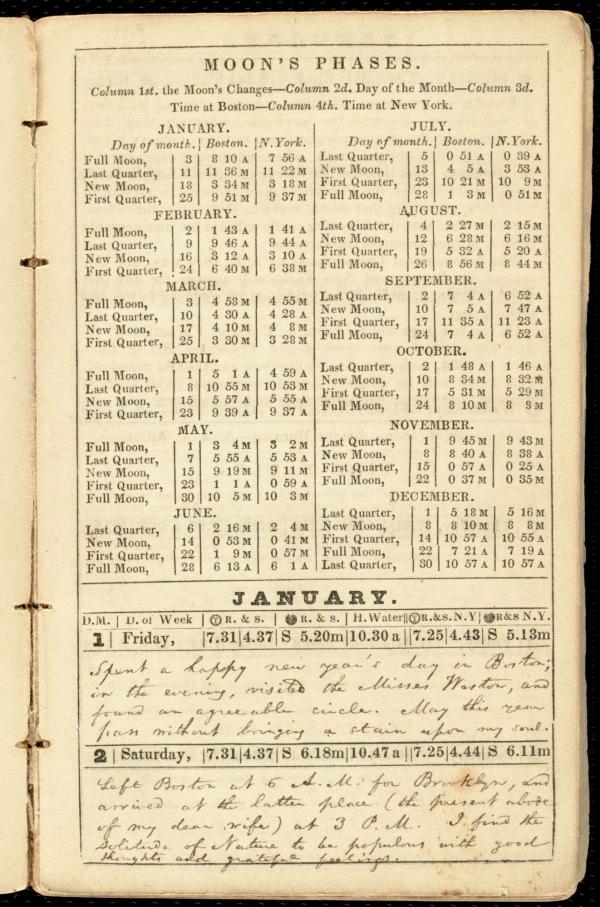 MOON'S PHASES.
Column 1st. the Moon's Changes—Column 2d. Day of the Month—Column 3d.
Time at Boston—Column 4th. Time at New York.
JANUARY.
Day of month. | Boston. | N. York.
Full Moon, | 3 | 8 10 A | 7 56 A
Last Quarter, | 11 | 11 36 M | 11 22 M
New Moon, | 18 | 3 34 M | 3 18 M
First Quarter, | 25 | 9 51 M | 9 37 M
FEBRUARY.
Full Moon, | 2 | 1 43 A | 1 41 A
Last Quarter, | 9 | 9 46 A | 9 44 A
New Moon, | 16 | 3 12 A | 3 10 A
First Quarter, | 24 | 6 40 M | 6 38 M
MARCH.
Full Moon, | 3 | 4 58 M | 4 55 M
Last Quarter, | 10 | 4 30 A | 4 28 A
New Moon, | 17 | 4 10 M | 4 8 M
First Quarter, | 25 | 3 30 M | 3 28 M
APRIL.
Full Moon, | 1 | 5 1 A | 4 59 A
Last Quarter, | 8 | 10 55 M | 10 53 M
New Moon, | 15 | 5 57 A | 5 55 A
First Quarter, | 23 | 9 39 A | 9 37 A
MAY.
Full Moon, | 1 | 3 4 M | 3 2 M
Last Quarter, | 7 | 5 55 A | 5 53 A
New Moon, | 15 | 9 19 M | 9 11 M
First Quarter, | 23 | 1 1 A | 0 59 A
Full Moon, | 30 | 10 5 M | 10 3 M
JUNE.
Last Quarter, | 6 | 2 16 M | 2 4 M
New Moon, | 14 | 0 53 M | 0 41 M
First Quarter, | 22 | 1 9 M | 0 57 M
Full Moon, | 28 | 6 13 A | 6 1 A
JULY.
Day of month. | Boston. | N. York.
Last Quarter, | 5 | 0 51 A | 0 39 A
New Moon, | 13 | 4 5 A | 3 53 A
First Quarter, | 23 | 10 21 M | 10 9 M
Full Moon, | 28 | 1 3 M | 0 51 M
AUGUST.
Last Quarter, | 4 | 2 27 M | 2 15 M
New Moon, | 12 | 6 28 M | 6 16 M
First Quarter, | 19 | 5 32 A | 5 20 A
Full Moon, | 26 | 8 56 M | 8 44 M
SEPTEMBER.
Last Quarter, | 2 | 7 4 A | 6 52 A
New Moon, | 10 | 7 5 A | 7 47 A
First Quarter, | 17 | 11 35 A | 11 23 A
Full Moon, | 24 | 7 4 A | 6 52 A
OCTOBER.
Last Quarter, | 2 | 1 48 A | 1 46 A
New Moon, | 10 | 8 34 M | 8 32 M
First Quarter, | 17 | 5 31 M | 5 29 M
Full Moon, | 24 | 8 10 M | 8 8 M
NOVEMBER.
Last Quarter, | 1 | 9 45 M | 9 43 M
New Moon, | 8 | 8 40 A | 8 38 A
First Quarter, | 15 | 0 57 A | 0 25 A
Full Moon, | 22 | 0 37 M | 0 35 M
DECEMBER.
Last Quarter, | 1 | 5 18 M | 5 16 M
New Moon, | 8 | 8 10 M | 8 8 M
First Quarter, | 14 | 10 57 A | 10 55 A
Full Moon, | 22 | 7 21 A | 7 19 A
Last Quarter, | 30 | 10 57 A | 10 57 A
JANUARY.
D.M. | D. of Week | R. & s. | R. & s. | H. Water || R.&s. N.Y | R&s N.Y.
1 | Friday, | 7.31 | 4.37 | S 5.20m | 10.30 a || 7.25 | 4.43 | S 5.13m
Spent a happy new year's day in Boston;
in the evening, visited the Misses Weston, and
found an agreeable circle. May this year
pass without bringing a stain upon my soul.
2 | Saturday, | 7.31 | 4.37 | S 6.18m | 10.47 a || 7.25 | 4.44 | S 6.11m
Left Boston at 6 A. M. for Brooklyn, and
arrived at the latter place (the present abode
of my dear wife) at 3 P. M. I find the
solitude of Nature to be populous with good
thoughts and grateful feelings.